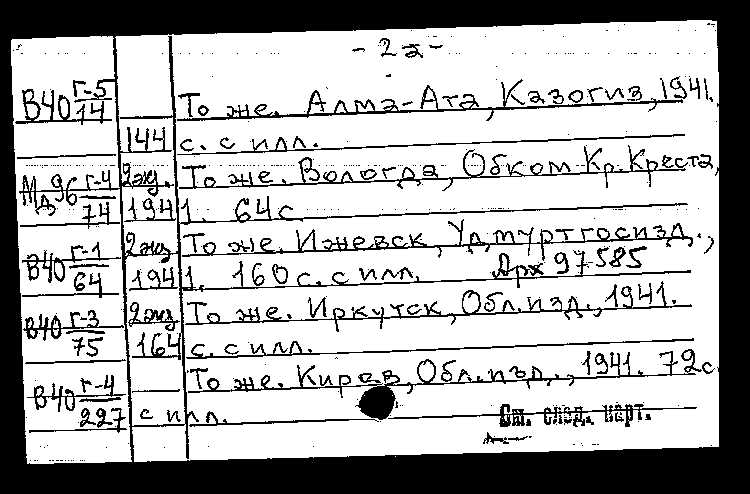 - 2 а -
В40 Г-5/14 То же. Алма-Ата, Казогиз, 1941.
144 с. с илл.
Мд96 Г-4/74 2экз. То же. Вологда, Обком Кр. Креста,
1941. 64 с.
В40 Г-1/64 2экз То же. Ижевск, Удмуртгосизд.,
1941. 160 с. с илл. Арх 97585
В40 Г-3/75 2экз То же. Иркутск, Обл. изд., 1941.
164 с. с илл.
В40 Г-4/227 То же. Киров, Обл. изд., 1941. 72 с
с илл.
См. след. карт.